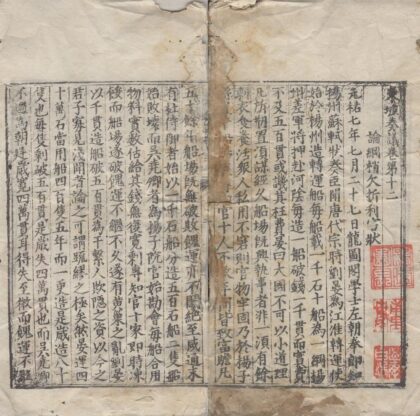 東坡奏議卷第十二
論綱梢欠折利害狀
元祐七年七月二十七日龍圖閣學士左朝奉郎知
揚州蘇軾狀奏臣聞唐代宗時劉晏爲江淮轉運使
始於揚州造轉運船每船載一千石十船爲一綱揚
州差軍將押赴河陰每造一船破錢一千貫而實費
不及五百貫或譏其枉費晏曰大國不可以小道理
凡所創置須謀經久船場既興執事者非一須有餘
剩衣食養活衆人私用不窘則官物牢固乃於揚子
官十人不數年間皆致富贍凡
五十餘年船場既無破敗餽運亦不闕絕至咸通末
有杜侍御者始以一千石船分造五百石船二隻船
始敗壞而吳堯卿者爲揚子院官始勘會每船合用
物料實數估給其錢無復寬剩專知官十家即時凍
餒而船場遂破餽運不繼不久遂有黃巢之亂劉晏
以一千貫造船破五百貫爲干繫人欺隱之資以今之
君子寡見淺聞者論之可謂疏繆之極矣然晏運四
十萬石當用船四百隻五年而一更造是歲造八十
隻也每隻剩破五百貫是歲失四萬貫也而吳堯卿
不過爲朝廷歲寬四萬貫耳得失至微而餽運不